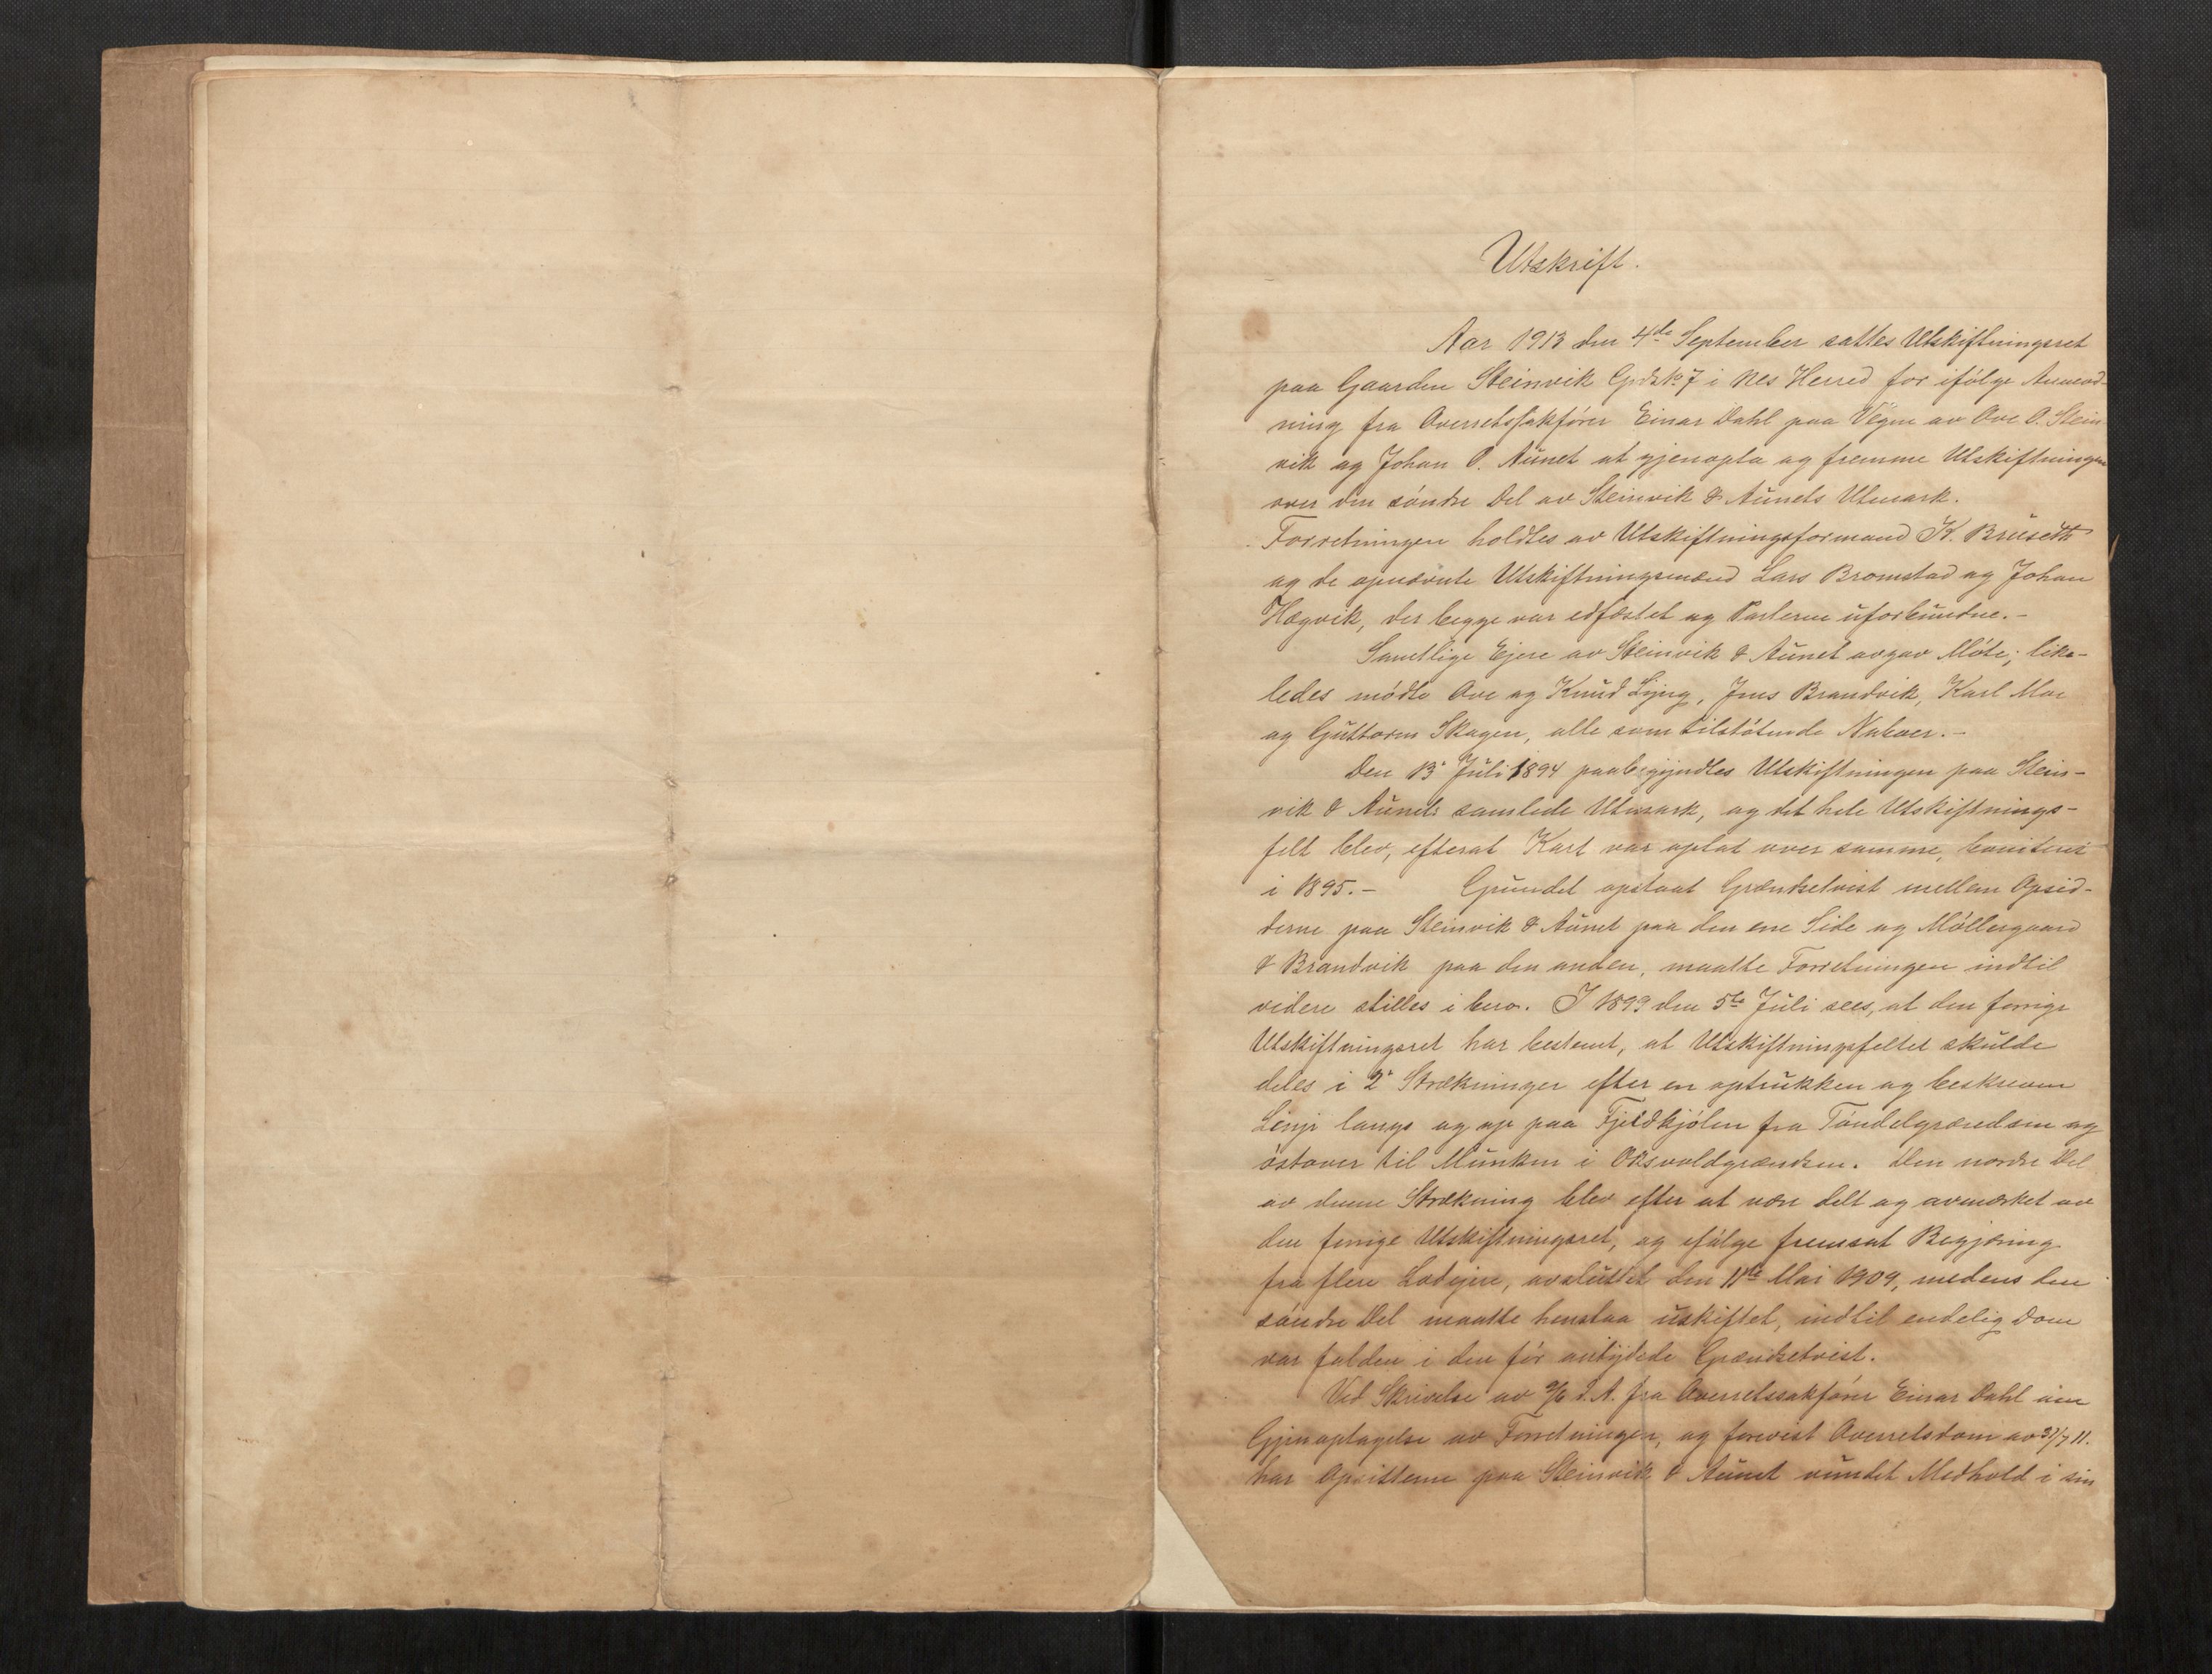 Utskrift.
Aar 1913 den 4de September sattes Utskiftningsret
paa Gaarden Steinvik Grds No 7 i Nes Herred for ifølge Anmod-
ning fra Overretssakfører Einar Dahl paa Vegne av Ove O. Stein-
vik og Johan P. Aunet at gjenopta og fremme Utskiftningen
over den søndre Del av Steinvik & Aunets Utmark.
Forretningen holdtes av Utskiftningsformand K. Bruseth
og de opnævnte Utskiftningsmænd Lars Bromstad og Johan
Hegvik, der begge var edfæstet og Parterne uforbundne.-
Samtlige Ejere av Steinvik & Aunet avgav Møte; like-
ledes mødte Ove og Knud Lyng, Jens Brandvik, Karl Moe
og Guttorm Skagen, alle som tilstøtende Naboer.-
Den 13' Juli 1894 paabegyndtes Utskiftningen paa Stein-
vik & Aunets samlede Utmark, og det hele Utskiftnings-
felt blev, efterat Kart var optat over samme, boniteret
i 1895.- Grundet opstaat Grændsetvist mellem Opsid-
derne paa Steinvik & Aunet paa den ene Side og Möllergaard
& Brandvik paa den anden, maatte Forretningen indtil
videre stilles i bero. I 1899 den 5te Juli sees, at den forrige
Utskiftningsret har bestemt, at Utskiftningsfeltet skulde
deles i 2' Strækninger efter en optrukken og beskreven
Linje langs og op paa Fjeldkjølen fra Tøndelgrændsen og
østover til Munken i Oksvoldgrændsen. Den nordre Del
av denne Strækning blev efter at være delt og avmerket av
den forrige Utskiftningsret, og ifølge fremsat Begjæring
fra flere Lodejere, avsluttet den 11te Mai 1909, medens den
søndre Del maatte henstaa uskiftet, indtil endelig Dom
var falden i den før antydede Grændsetvist.
Ved Skrivelse av /6 d.A. fra Overretssakfører Einar Dahl om
Gjenoptagelse av Forretningen, og forevist Overretsdom av /7 11.
har Opsitterne paa Steinvik & Aunet vundet Medhold i sin